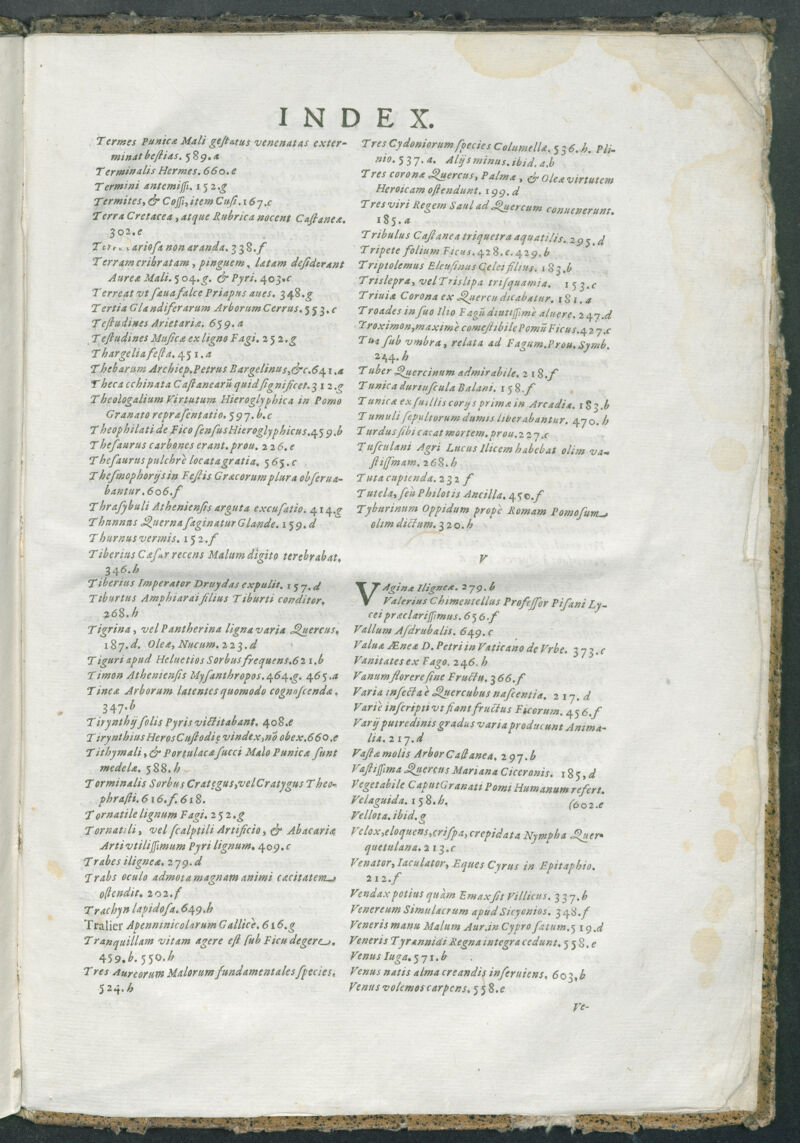 INDEX.
Termes Punicæ Mali gestatus venenatas exter-
minat bestias. 589.a
Terminalis Hermes. 660.e
Termini antemissi. 152.g
Termites, & Cossi, item Cusi. 167.c
Terra Cretacea, atque Rubrica nocent Castaneæ.
302.e
non aranda. 338.f
Terram cribratam, pinguem, latam desiderant
Aureæ Mali. 504.g. & Pyri. 403.c
Terreat vt sæua falce Priapus aues. 348.g
Tertia Glandiferarum Arborum Cerrus. 553.c
Testudines Arietariæ. 659.a
Testudines Musicæ ex ligno Fagi. 252.g
Thargelia festa. 451.a
Thebarum Archiep. Petrus Bargelinus, &c. 641.a
Theca echinata Castanearū quid significet. 312.g
Theologalium Virtutum Hieroglyphica in Pomo
Granato repræsentatio. 597.b.c
Theophilati de Fico sensus Hieroglyphicus. 459.b
Thesaurus carbones erant. prou. 226.e
Thesaurus pulchrè locata gratia. 565.c
Thesmophorijs in Festis Græcorum plura obserua-
bantur. 606.f
Thrasybuli Atheniensis arguta excusatio. 414.g
Thunnas Querna saginatur Glande. 159.d
Thurnus vermis. 152.f
Tiberius Cæsar recens Malum digito terebrabat.
346.h
Tiberius Imperator Druydas expulit. 157.d
Tiburtus Amphiarai filius Tiburti conditor.
268.h
Tigrina, vel Pantherina ligna varia Quercus.
187.d. Oleæ, Nucum. 223.d
Tiguri apud Heluetios Sorbus frequens. 621.b
Timon Atheniensis Mysanthropos. 464.g. 465.a
Tineæ Arborum latentes quomodo cognoscendæ.
347.b
Tirynthij solis Pyris victitabant. 408.e
Tirynthius Heros Custodię vindex, nō obex. 660.e
Tithymali, & Portulacæ succi Malo Punicæ sunt
medela. 588.h
Torminalis Sorbus Cratęgus, vel Cratygus Theo-
phrasti. 616.f. 618.
Tornatile lignum Fagi. 252.g
Tornatili, vel scalptili Artificio, & Abacariæ
Arti vtilissimum Pyri lignum. 409.c
Trabes iligneæ. 279.d
Trabs oculo admota magnam animi cæcitatem
ostendit. 202.f
Trachyn lapidosa. 649.h
Tralier Apenninicolarum Gallicè. 616.g
Tranquillam vitam agere est sub Ficu degere.
459.b. 550.h
Tres Aureorum Malorum fundamentales species.
524.h
Tres Cydoniorum species Columellæ. 536.h. Pli-
nio. 537.a. Alijs minus. ibid. a.b
Tres coronæ Quercus, Palmæ, & Oleæ virtutem
Heroicam ostendunt. 199.d
Tres viri Regem Saul ad Quercum conuenerunt.
185.a
Tribulus Castanea triquetra aquatilis. 295.d
Tripete folium Ficus. 428.e. 429.b
Triptolemus Eleusinus Celei filius. 183.b
Trislepra, vel Trislipa trisquamia. 153.c
Triuiæ Corona ex Quercu dicabatur. 181.a
Troades in suo Ilio Fagū diutissimè aluere. 247.d
Troximon, maximè comestibile Pomū Ficus. 427.c
Tua sub vmbra, relata ad Fagum. Prou. Symb.
244.h
Tuber Quercinum admirabile. 218.f
Tunica durtuscula Balani. 158.f
Tunicæ ex suillis corijs primæ in Arcadia. 183.b
Tumuli sepultorum dumis liberabantur. 470.h
Turdus sibi cacat mortem. prou. 227.c
Tusculani Agri Lucus Ilicem habebat olim va-
stissimam. 268.h
Tuta cupienda. 232 f
Tutela, seù Philotis Ancilla. 450.f
Tyburinum Oppidum propè Romam Pomosum
olim dictum. 320.h
V
VAgina Ilignea. 279.b
Valerius Chimentellus Professor Pisani Ly-
cei præclarissimus. 656.f
Vallum Asdrubalis. 649.c
Valuæ Æneæ D. Petri in Vaticano de Vrbe. 373.c
Vanitates ex Fago. 246.h
Vanum florere sine Fructu. 366.f
Varia insecta è Quercubus nascentia. 217.d
Variè inscripti vt fiant fructus Ficorum. 456.f
Varij putredinis gradus varia producunt Anima-
lia. 217.d
Vastæ molis Arbor Castanea. 297.b
Vastissima Quercus Mariana Ciceronis. 185.d
Vegetabile Caput Granati Pomi Humanum refert.
Velaguida. 158.h. (602.e
Vellota. ibid. g
Velox, eloquens, crispa, crepidata Nympha Quer-
quetulana. 213.c
Venator, Iaculator, Eques Cyrus in Epitaphio.
212.f
Vendax potius quàm Emax sit Villicus. 337.b
Venereum Simulacrum apud Sicyonios. 348.f
Veneris manu Malum Aur. in Cypro satum. 519.d
Veneris Tyrannidi Regna integra cedunt. 558.e
Venus Iuga. 571.b
Venus natis alma creandis inseruiens. 603.b
Venus volemos carpens. 558.e
Ve-